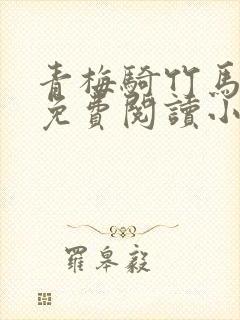 青梅騎竹馬
免費閱讀小
羅皋毅